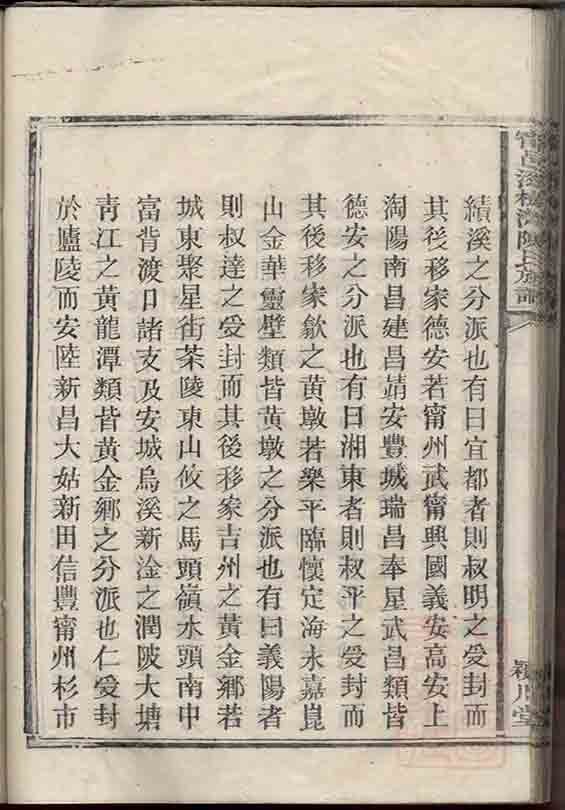 績溪之分派也有曰宜都者則叔明之受封而
其後移家德安若甯州武甯興國義安高安上
淘陽南昌建昌靖安豐城瑞昌奉星武昌類皆
德安之分派也有曰湘東者則叔平之受封而
其後移家歙之黄墩若樂平臨懷定海永嘉崑
山金華靈壁類皆黄墩之分派也有曰義陽者
則叔達之受封而其後移家吉州之黄金鄉若
城東聚星街茶陵東山攸之馬頭嶺水頭南中
富背渡口諸支及安城烏溪新淦之潤陂大塘
靑江之黄龍潭類皆黄金鄉之分派也仁受封
於廬陵而安陸新昌大姑新田信豐甯州杉市
陳氏族譜
潁川堂